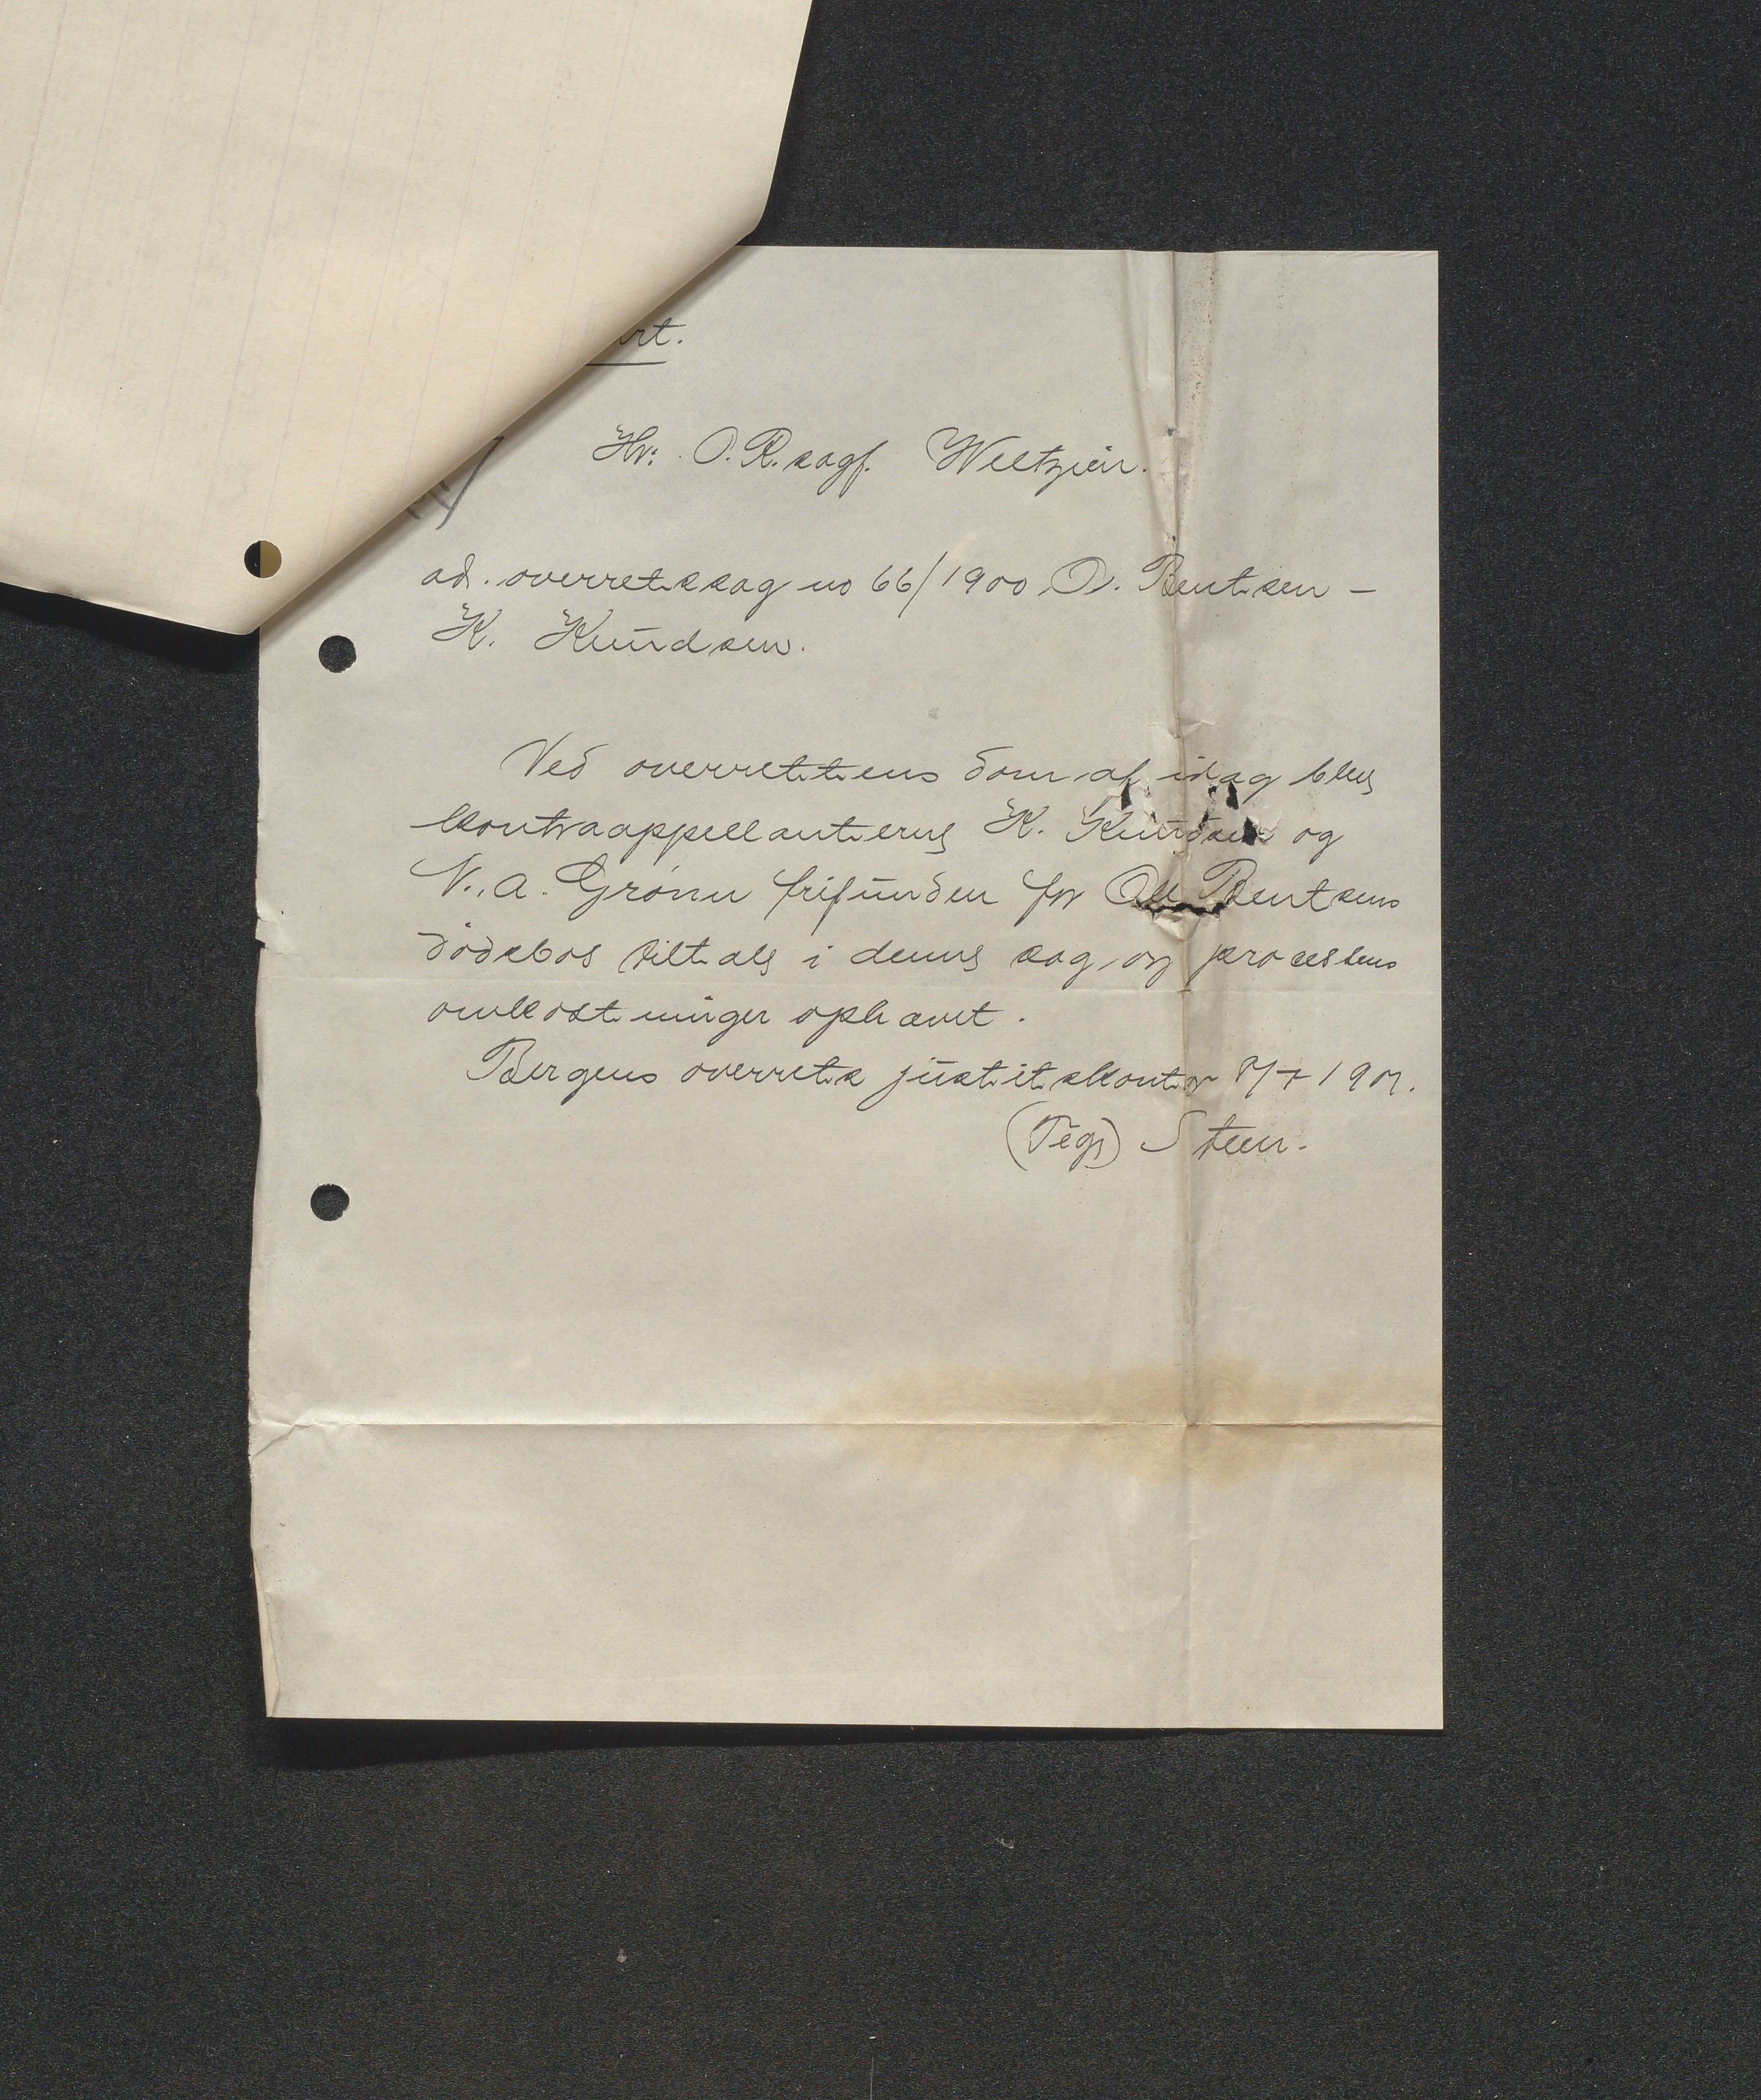 Hr: O.R.sagf. Weltzien.
ad. overretssag no 66/1900 O. Bentsen –
K. Knudsen.
Ved overrettens dom af idag blev
kontraappellanterne K. Knudsen og
N. A. Grønn frifunden for Ole Bentsens
dødsbos tiltale i denne sag og processens
omkostninger ophævet.
Bergens overrets justitskontor 8/7 1901.
(Tegn) Steen.